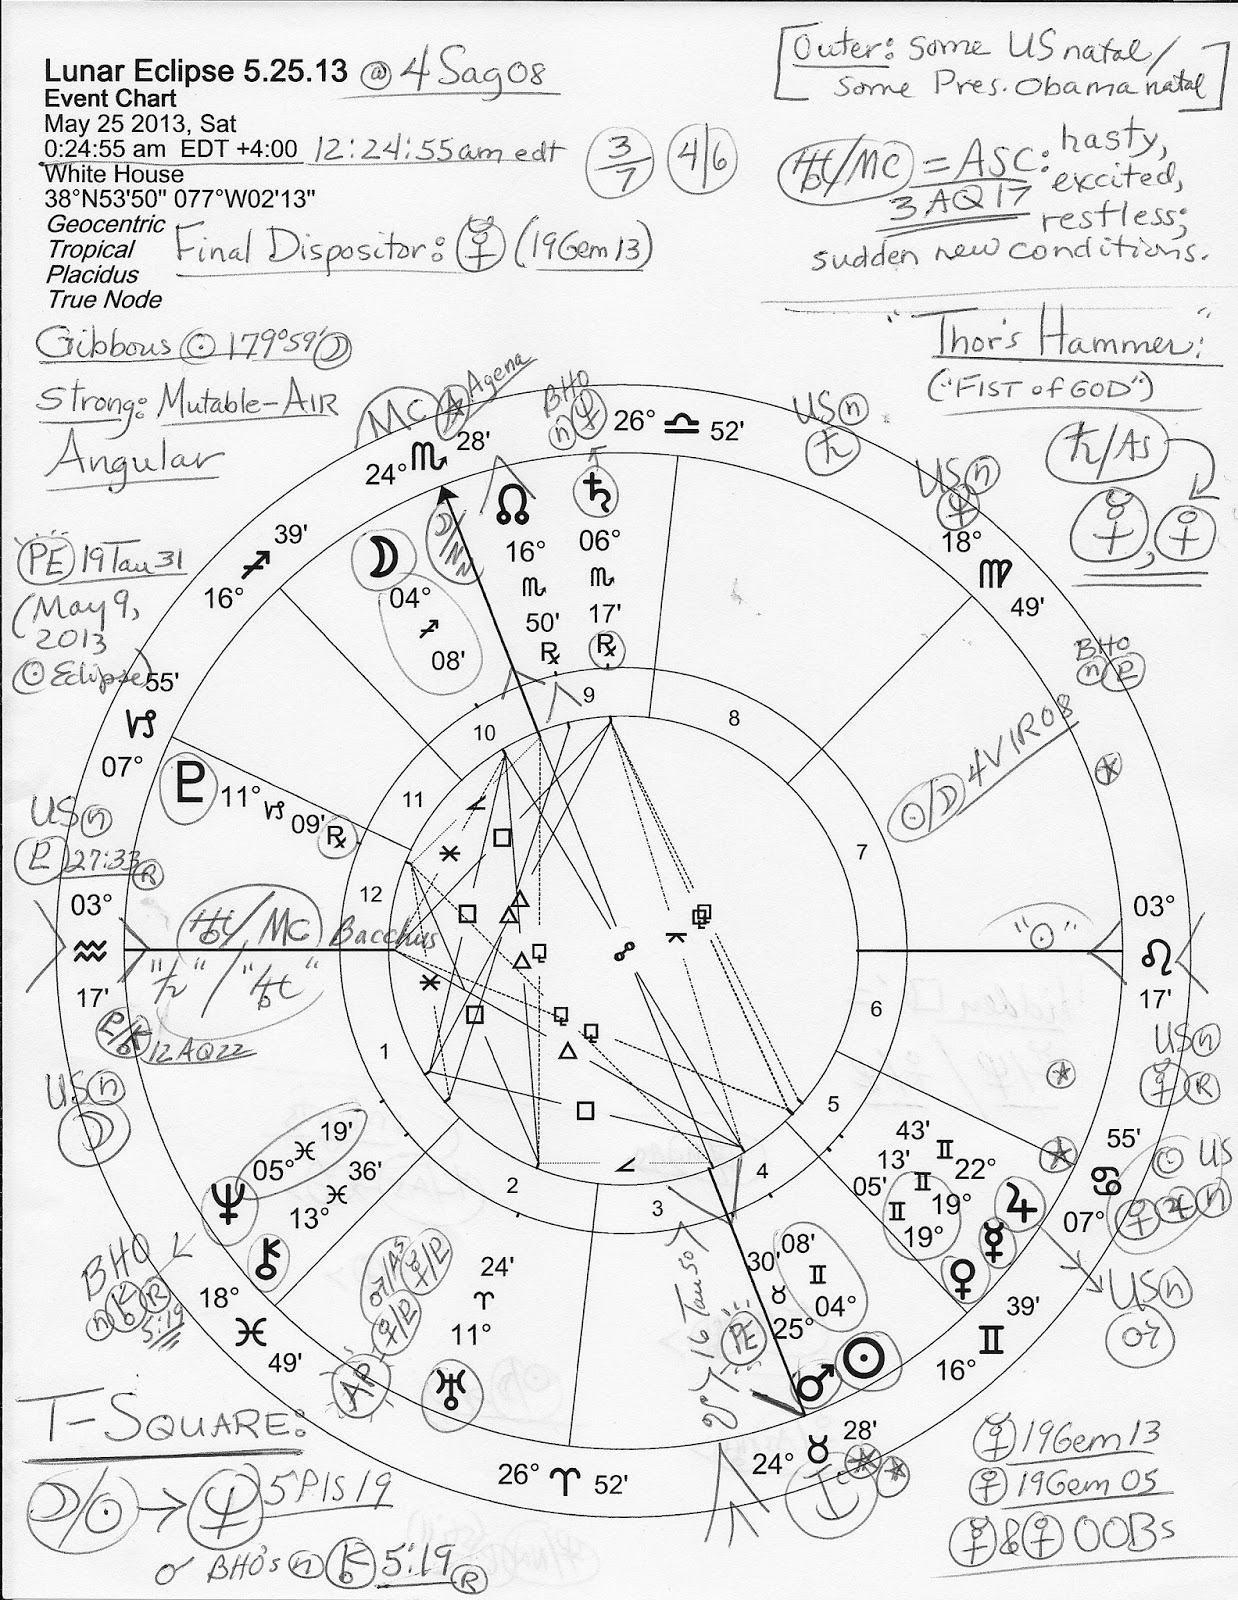 Lunar Eclipse 5.25.13 @ 4 Sag 08
Event Chart
May 25 2013, Sat
0:24:55 am EDT +4:00 12:24:55am edt
White House
38°N53'50" 077°W02'13"
Geocentric
Tropical
Placidus
True Node
Final Dispositor: ☿ (19Gem13)
3/7 4/6
[Outer: some US natal/
some Pres. Obama natal]
♅/MC = ASC: hasty,
3AQ17 excited,
restless;
sudden new conditions.
Gibbous ☉ 179°59' ☽
Strong: Mutable-AIR
Angular
"Thor's Hammer:"
("FIST of GOD")
♄/As
☿, ♀
PE 19Tau31
(May 9,
2013
☉ Eclipse)
MC Agena
24° ♏ 28'
BHO
n ♆
26° ♎ 52'
US n
♄
US n
♆
18° ♍ 49'
39'
♐
16°
☽
04°
♐
08'
☽/NN
☊
16°
♏
50'
℞
♄
06°
♏
17'
℞
BHO
n ♇
☉/☽ 4VIR08
55'
♑
07°
♇ 11° ♑ 09' ℞
US n
♇ 27:33 R
03°
♒
17'
♅/MC Bacchus
"♄"/"♅"
♇/⚷ 12AQ22
US n
☽
"☉"
03°
♌
17'
US n
☿ R
10
9
8
11
7
12
6
1
5
2
3
4
♆ 05° ♓ 19'
⚷ 13° ♓ 36'
BHO
n ⚷ R
5:19
18° ♓ 49'
♂/As
♀/♇
♀/♇
AP
24'
♈
11°
♅
16 Tau 50
PE
30'
♉
25°
♂
08'
♊
04°
☉
43'
♊
22°
♃
13'
♊
19°
☿
05'
♊
19°
♀
55'
♋
07°
☉ US
♀ ♃ n
US n
♂
39'
♊
16°
26° ♈ 52'
24° ♉ 28'
T-SQUARE:
☽/☉ → ♆ 5PIS19
♂ BHO's n ⚷ 5:19 R
☿ 19Gem13
♀ 19Gem05
☿ & ♀ OOBs